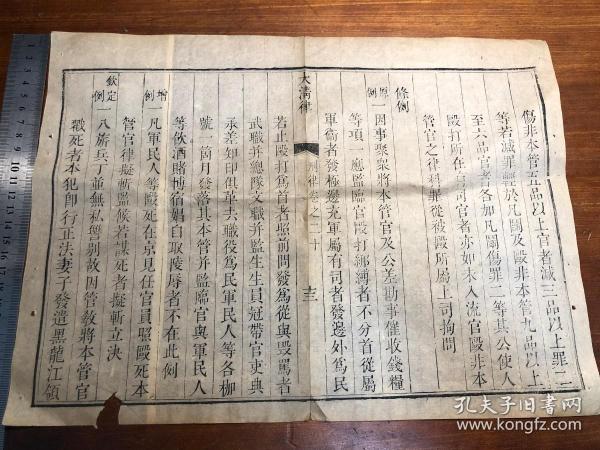 傷非本管五品以上官者減三品以上罪二
等若減罪輕於凡鬭及毆非本管九品以上
至六品官者各加凡鬭傷罪二等其公使人
毆打所在有司官者亦如未入流官毆非本
管官之律科罪從被毆所屬上司拘問
條例
原例
一因事聚衆將本管官及公差勘事催收錢糧
等項一應監臨官毆打綁縛者不分首從屬
軍衛者發極邊充軍屬有司者發邊外爲民
大清律
刑律卷之二十
十三
若止毆打爲首者照前問發爲從與毀罵者
武職并總隊文職并監生生員冠帶官吏典
承差知印俱革去職役爲民軍民人等各枷
號一箇月發落其本管并監臨官與軍民人
等飲酒賭博宿娼自取陵辱者不在此例
增例
一凡軍民人等毆死在京見任官員照毆死本
管官律擬斬監候若謀死者擬斬立決
欽定例
一八旗兵丁並無私讐别故因管教將本管官
戳死者本犯即行正法妻子發遣黑龍江領
孔夫子旧書网
www.kongfz.com